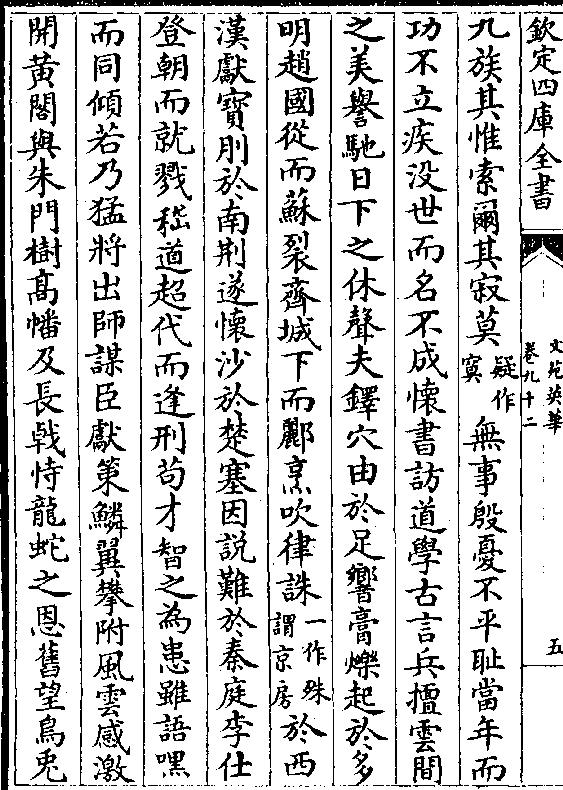 欽定四庫全書
文苑英華
卷九十二
五
九族其惟索爾其寂莫疑作寞無事殷憂不平耻當年而
功不立疾没世而名不成懷書訪道學古言兵擅雲間
之美譽馳日下之休聲夫鐸穴由於足響膏爍起於多
明趙國從而蘇裂齊城下而酈烹吹律誅一作殊謂京房於西
漢獻寳刖於南荆遂懷沙於楚塞因説難於秦庭李仕
登朝而就戮嵇道超代而逢刑苟才智之為患雖語嘿
而同傾若乃猛將出師謀臣獻策鱗翼攀附風雲感激
開黄閤與朱門樹髙幡及長㦸恃龍蛇之恩舊望烏兎